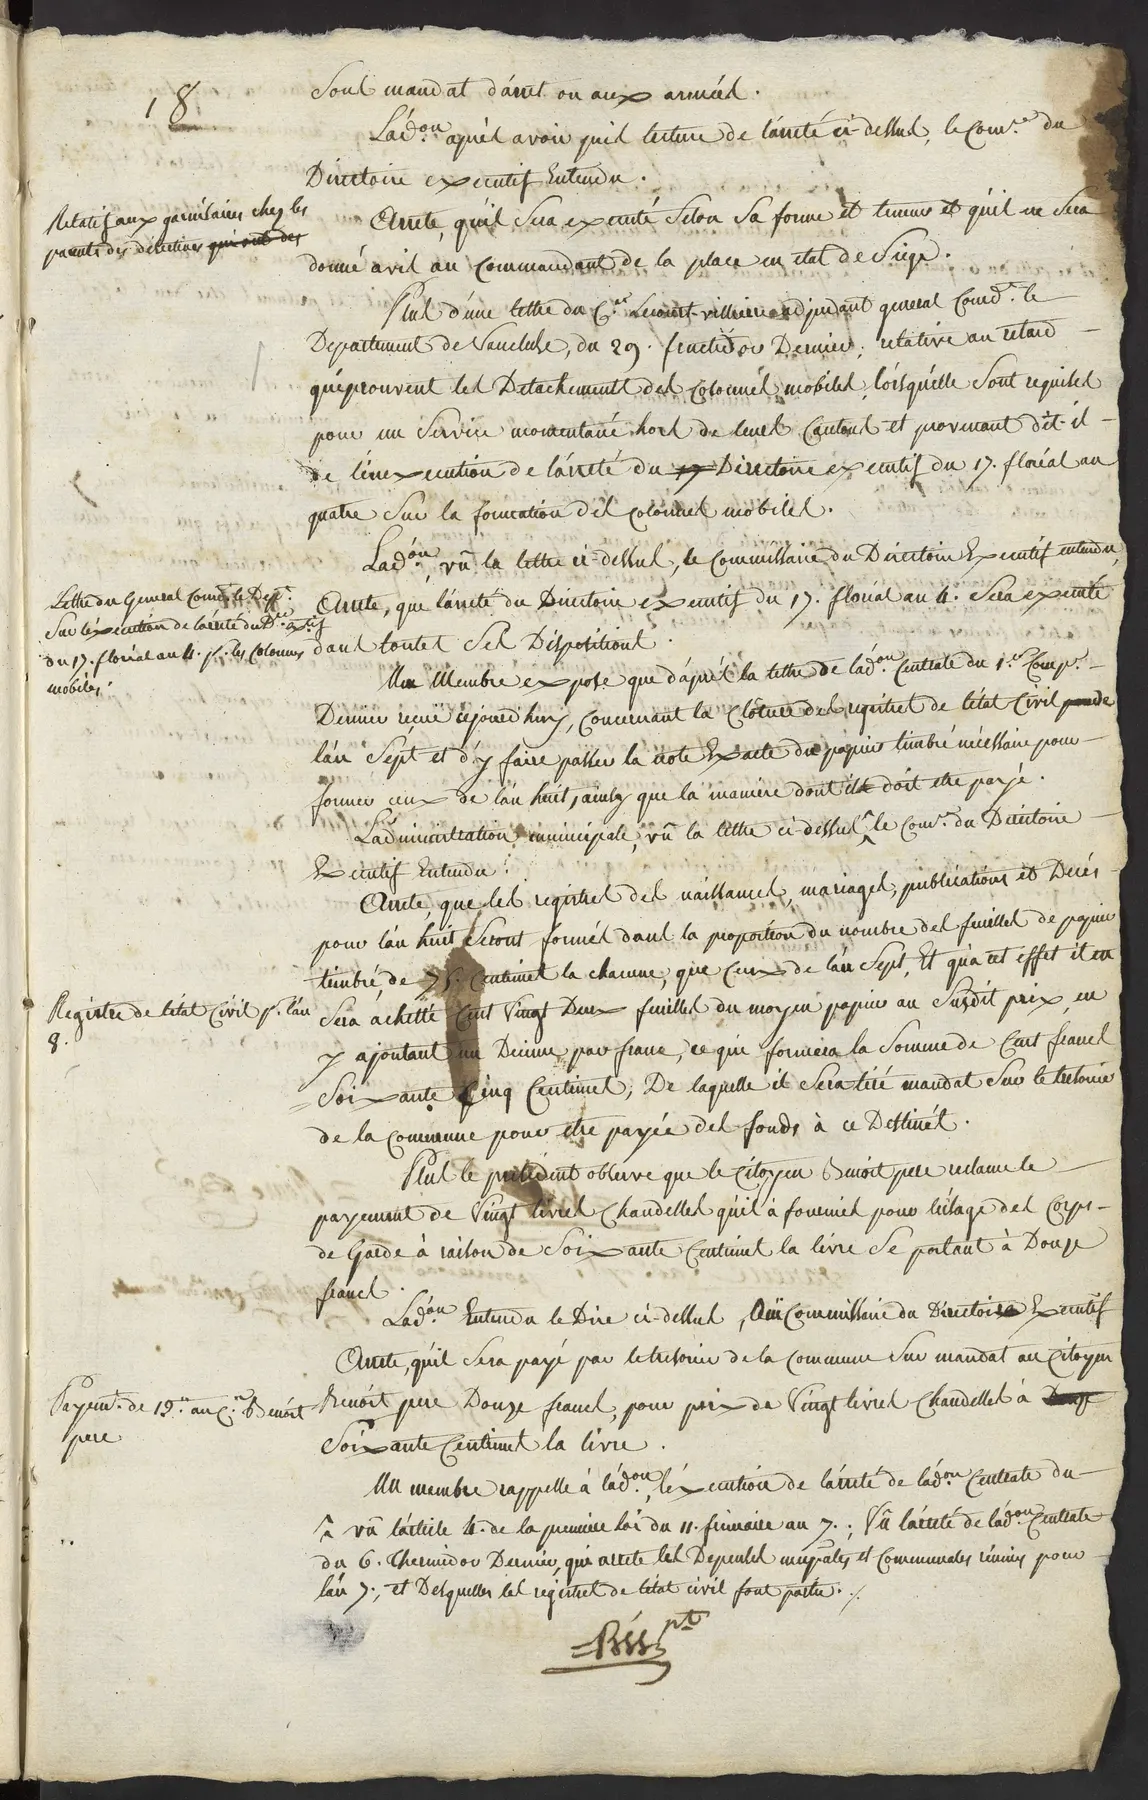 18
sous mandat d'arret ou aux armées.
L'ad.on après avoir pris lecture de l'arreté ci-dessus, le Com.re du
Directoire executif Entendu.
Relatif aux garnisaires chez les
parents des déserteurs qui ont des
Arrete, qu'il sera executé selon sa forme et teneur et qu'il en sera
donné avis au Commandant de la place en etat de Siege.
Plus d'une lettre du C.en adjudant general Comd.t le
Departement de Vaucluse, du 29. fructidor Dernier; relative au retard
qu'éprouvent les Détachements des colonnes mobiles, lorsqu'elle sont requises
pour un Service momentané hors de leurs Cantons et provenant dit-il
de l'inexecution de l'arreté du 17 Directoire executif du 17. floréal an
quatre sur la formation des colonnes mobiles.
L'ad.on, vû la lettre ci-dessus, le Commissaire du Directoire Executif entendu,
Lettre du General Com.t le Dep.t
sur l'éxécution de l'arreté du D.re ex.tif
du 17. floréal an 4. p.r les Colonnes
mobiles.
Arrete, que l'arreté du Directoire executif du 17. floréal an 4. sera executé
dans toutes ses Dispositions.
Un Membre expose que d'après la lettre de l'ad.on Centrale du 1.er Comp.re
Dernier reçue cejourd'huy, concernant la Clôture des registres de l'état Civil pende
l'an sept et d'y faire passer la note Exacte du papier timbré nécessaire pour
former ceux de l'an huit, ainsy que la maniere dont il doit etre payé.
L'administration municipale, vû la lettre ci-dessus, le Com.re du Directoire
Executif Entendu.
Arrete, que les registres des naissances, mariages, publications et Décés
pour l'an huit Seront formés dans la proportion du nombre des feuilles de papier
timbré, de 75. Centimes la chacune, que ceux de l'an Sept, Et qu'a cet effet il en
Registre de l'état Civil p.r l'an
8.
Sera achetté Cent Vingt Deux feuilles du moyen papier au Susdit prix, en
y ajoutant un Décime par franc, ce qui formera la Somme de Cent francs
Soixante Cinq Centimes, De laquelle il sera tiré mandat sur le tresorier
de la Commune pour etre payée des fonds à ce Destinés.
Plus le président observe que le Citoyen Benoit pere reclame le
payement de Vingt livres Chandelles qu'il à fournies pour l'éclage des Corps-
de Garde à raison de Soixante Centimes la livre Se portant à Douze
francs.
L'ad.on Entendu le Dire ci-dessus, Oüi Commissaire du Directoire Executif
Arrete, qu'il sera payé par le tresorier de la Commune sur mandat au Citoyen
Payem.t de 12.## au C.en Benoit
pere
Benoit pere Douze francs, pour prix de Vingt livres Chandelles à Douze
Soixante Centimes la livre.
Un membre rappelle à l'ad.on, l'éxecution de l'arreté de l'ad.on Centrale du
^ vû l'article 4. de la premiere loi du 11. frimaire an 7.; Vû l'arreté de l'ad.on Centrale
du 6. Thermidor Dernier, qui arrete les Depenses mupales et Communales réunies pour
l'an 7., et Desquelles les registres de l'état civil font partie. ./.
pt